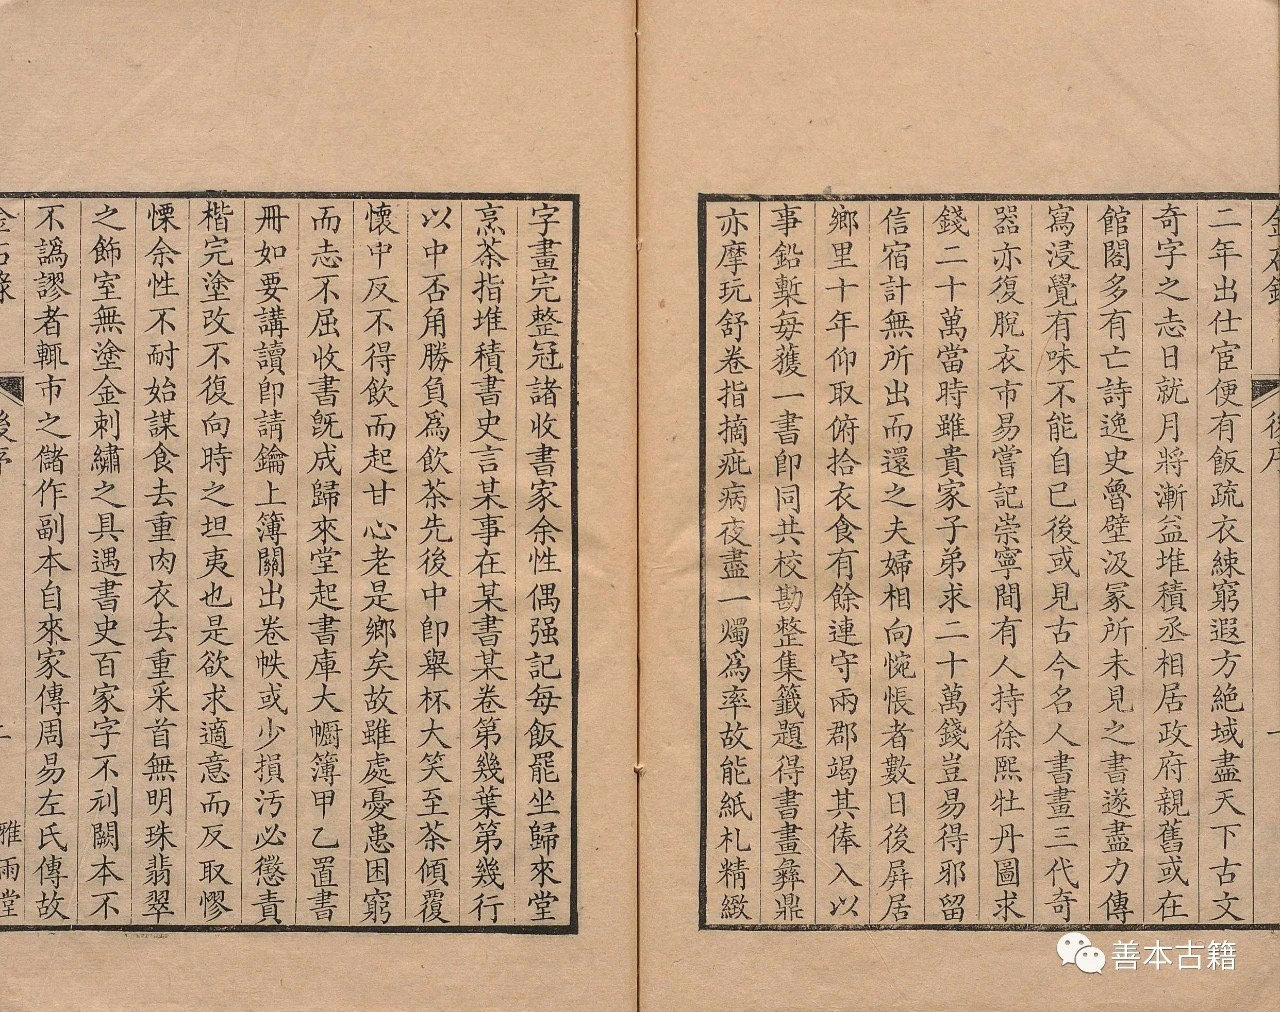 金石錄 後序 一
二年出仕宦便有飯疏衣練窮遐方絶域盡天下古文
奇字之志日就月將漸益堆積丞相居政府親舊或在
館閣多有亡詩逸史魯壁汲冡所未見之書遂盡力傳
寫浸覺有味不能自已後或見古今名人書畫三代奇
器亦復脫衣市易嘗記崇寧間有人持徐熙牡丹圖求
錢二十萬當時雖貴家子弟求二十萬錢豈易得邪留
信宿計無所出而還之夫婦相向惋悵者數日後屛居
鄉里十年仰取俯拾衣食有餘連守兩郡竭其俸入以
事鉛槧每獲一書卽同共校勘整集籤題得書畫彝鼎
亦摩玩舒卷指摘疵病夜盡一燭爲率故能紙札精緻
字畫完整冠諸收書家余性偶强記每飯罷坐歸來堂
烹茶指堆積書史言某事在某書某卷第幾葉第幾行
以中否角勝負爲飲茶先後中卽舉杯大笑至茶傾覆
懷中反不得飲而起甘心老是鄉矣故雖處憂患困窮
而志不屈收書旣成歸來堂起書庫大櫥簿甲乙置書
冊如要講讀卽請鑰上簿關出卷帙或少損汚必懲責
楷完塗改不復向時之坦夷也是欲求適意而反取憀
慄余性不耐始謀食去重肉衣去重采首無明珠翡翠
之飾室無塗金刺繡之具遇書史百家字不刓闕本不
不譌謬者輒市之儲作副本自來家傳周易左氏傳故
金石錄 後序 二 雅雨堂
善本古籍